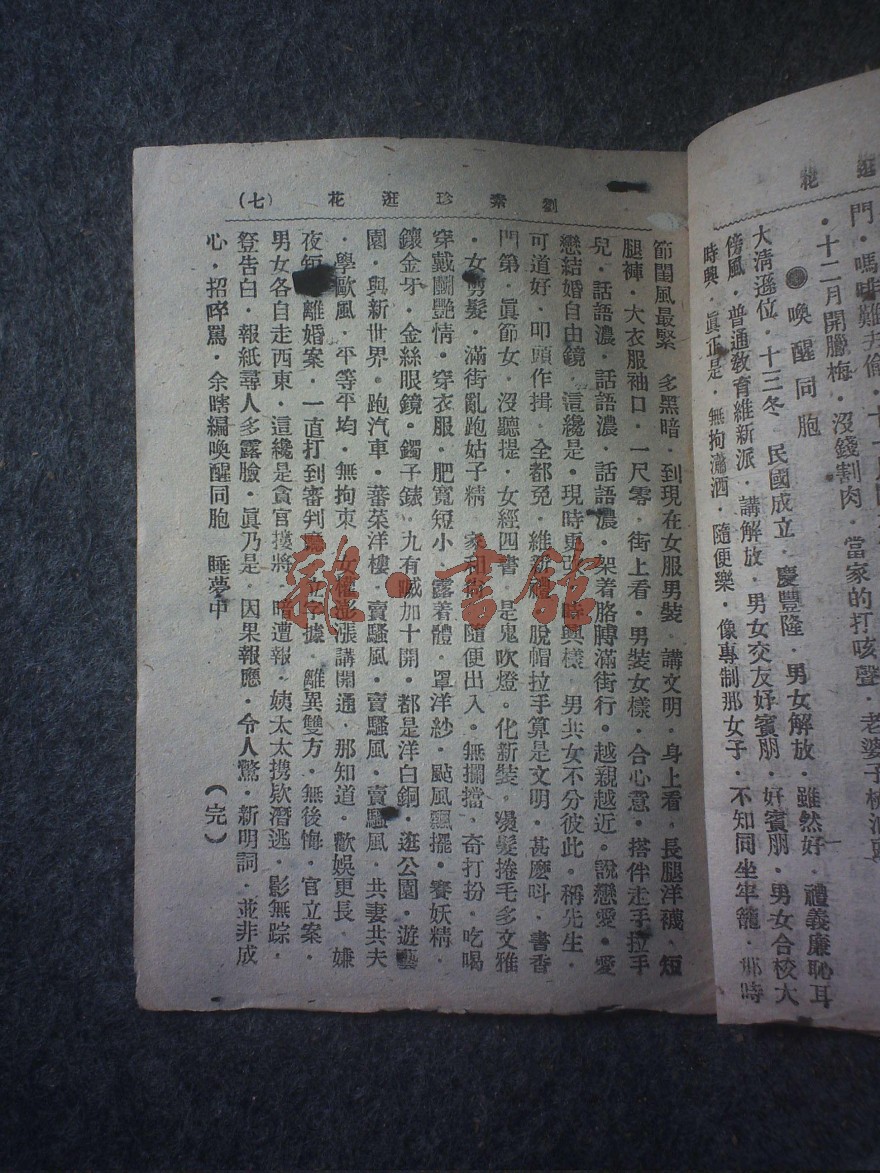 逛花
門·嗎啡難去偷·十
·十二月開臘梅·沒錢割肉·當家的打咳聲·老婆子
●喚醒同胞
大清遜位·十三冬　民國成立·慶豐隆·男女解放·雖然好·禮義廉恥耳
傍風·普通敎育維新派·講解放·男女交友好賓朋·好賓朋·男女合校大
時興·眞正是·無拘瀟洒·隨便樂·像專制那女子·不知同坐牢籠·那時
劉素珍逛花　（七）
節閨風最緊　多黑暗·到現在女服男裝·講文明·身上看·長腿洋襪·短
腿褲·大衣服袖口·一尺零·街上看·男裝女樣·合心意·搭伴走手拉手
兒·話語濃·話語濃·話語濃·架着胳膊滿街行·越親越近·說戀愛·愛
戀結婚自由鏡·這纔是·現時更改·時興樣·男共女不分彼此·稱先生·
可道好·叩頭作揖·全都免·維新禮·脫帽拉手算是文明·甚麽呌·書香
門第·眞節女·沒聽提·女經四書·是鬼吹燈·化新裝·燙髮捲毛多文雅
·女剪髮·滿街亂跑姑子精·家和尙·隨便出入·無攔擋·奇打扮·吃喝
穿戴鬭艷情·穿衣服·肥寬短小·露着體·罩洋紗·颭風飄擺·賽妖精·
鑲金牙·金絲眼鏡·鐲子錶·九有喊加十開·都是洋白銅·逛公園·遊藝
園·與新世界·跑汽車·蕃菜洋樓·賣騷風·賣騷風·賣騷風·共妻共夫
·學歐風·平等平均·無拘束·女權澎漲講開通·那知道·歡娛更長·嫌
夜短·離婚案·一直打到審判廳·立字據·離異雙方·無後悔·官立案·
男女各自走西東·這纔是貪官摟將·暗遭報·姨太太携欵潛逃·影無踪·
登告白·報紙尋人多露臉·眞乃是　因果報應·令人驚·新明詞·並非成
心·招啐罵·余瞎編喚醒同胞　睡夢中
（完）
雜·書館